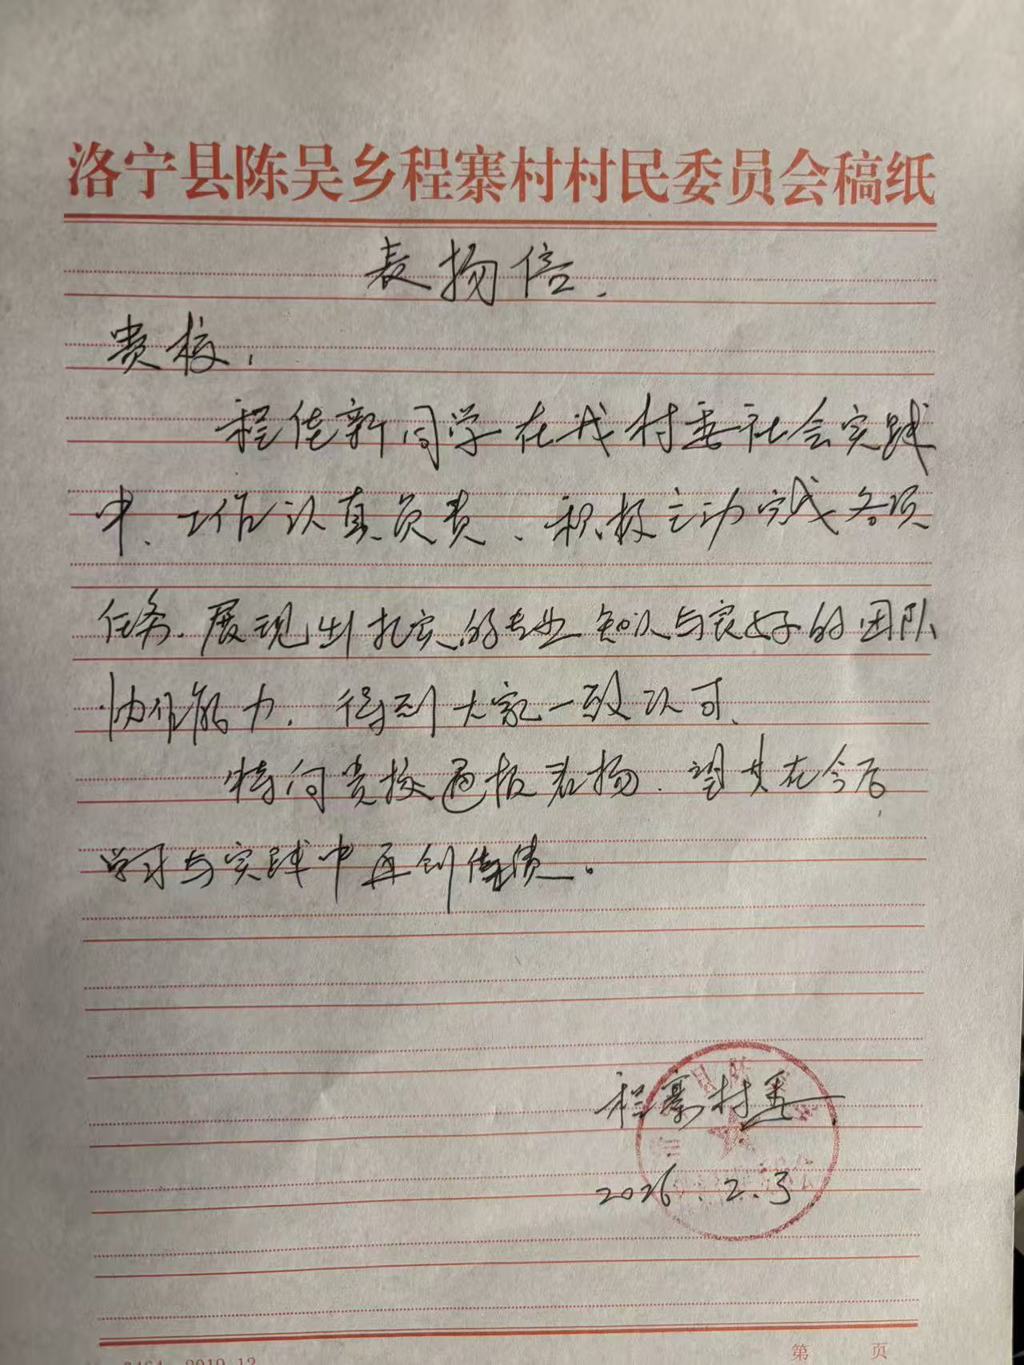 洛宁县陈吴乡程寨村村民委员会稿纸
表扬信.
贵校:
程佳新同学在我村委社会实践
中、工作认真负责、积极主动完成各项
任务.展现出扎实的专业知识与良好的团队
协作能力.得到大家一致认可.
特向贵校通报表扬.望其在今后
学习与实践中再创佳绩。
程寨村委
2026.2.3
第 页